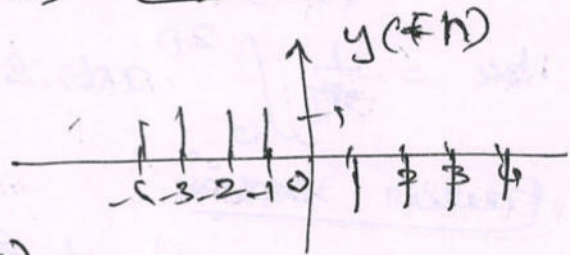 y(-n)
1
-4 -3 -2 -1 0 1 2 3 4